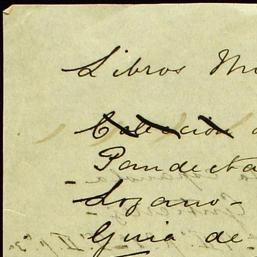 Libros
Colección
Pandecta
- Lozano -
Guia de